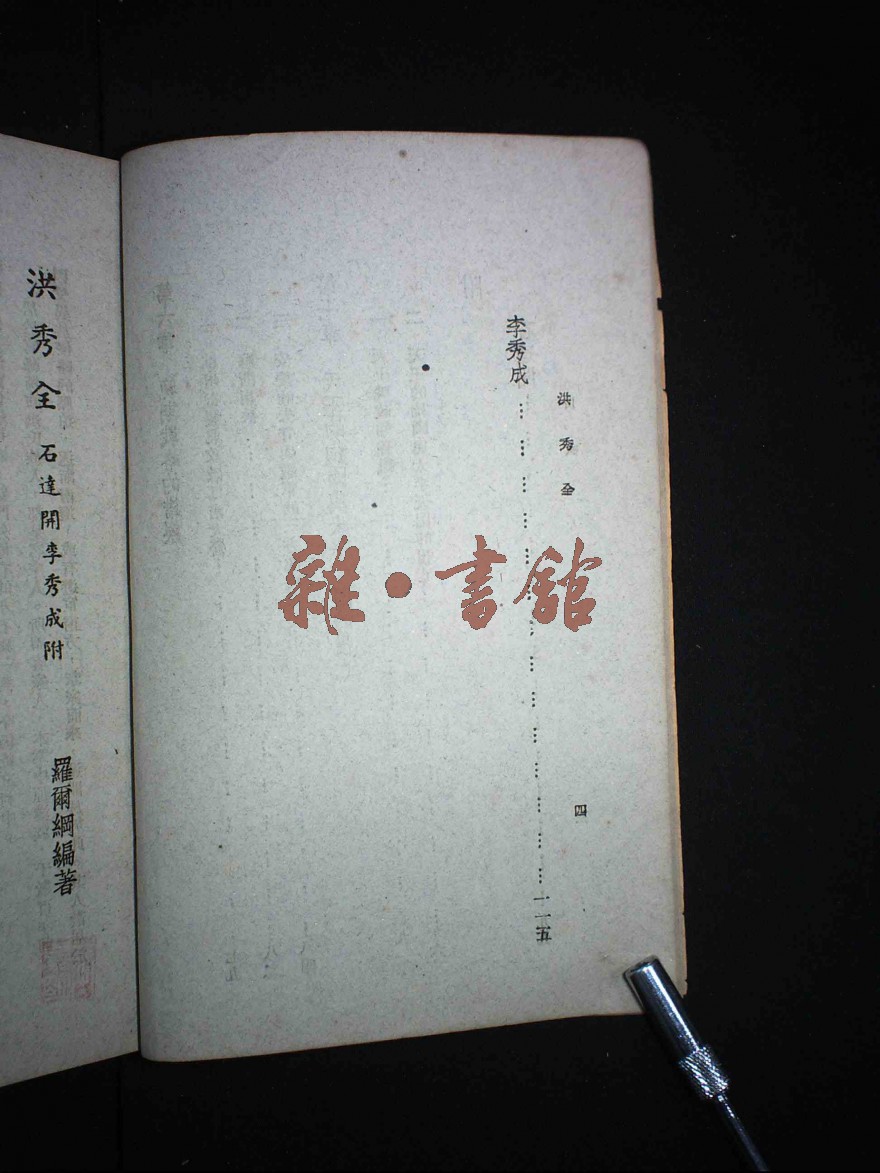 洪秀全 四
李秀成 … … … … … … … … … … … … … … 一一五
雜・書館
洪秀全 石達開李秀成附 羅爾綱編著